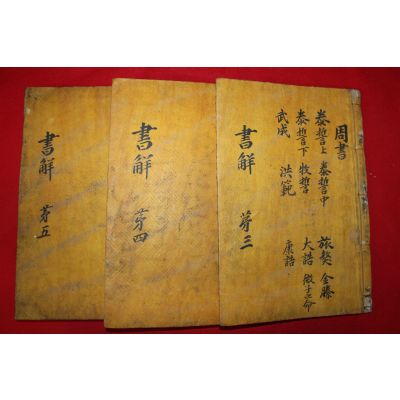 周書
泰誓上 泰誓中 旅獒 金縢
泰誓下 牧誓 大誥 微子之命
武成 洪範 康誥
書解 苐三
書解 苐四
書解 苐五